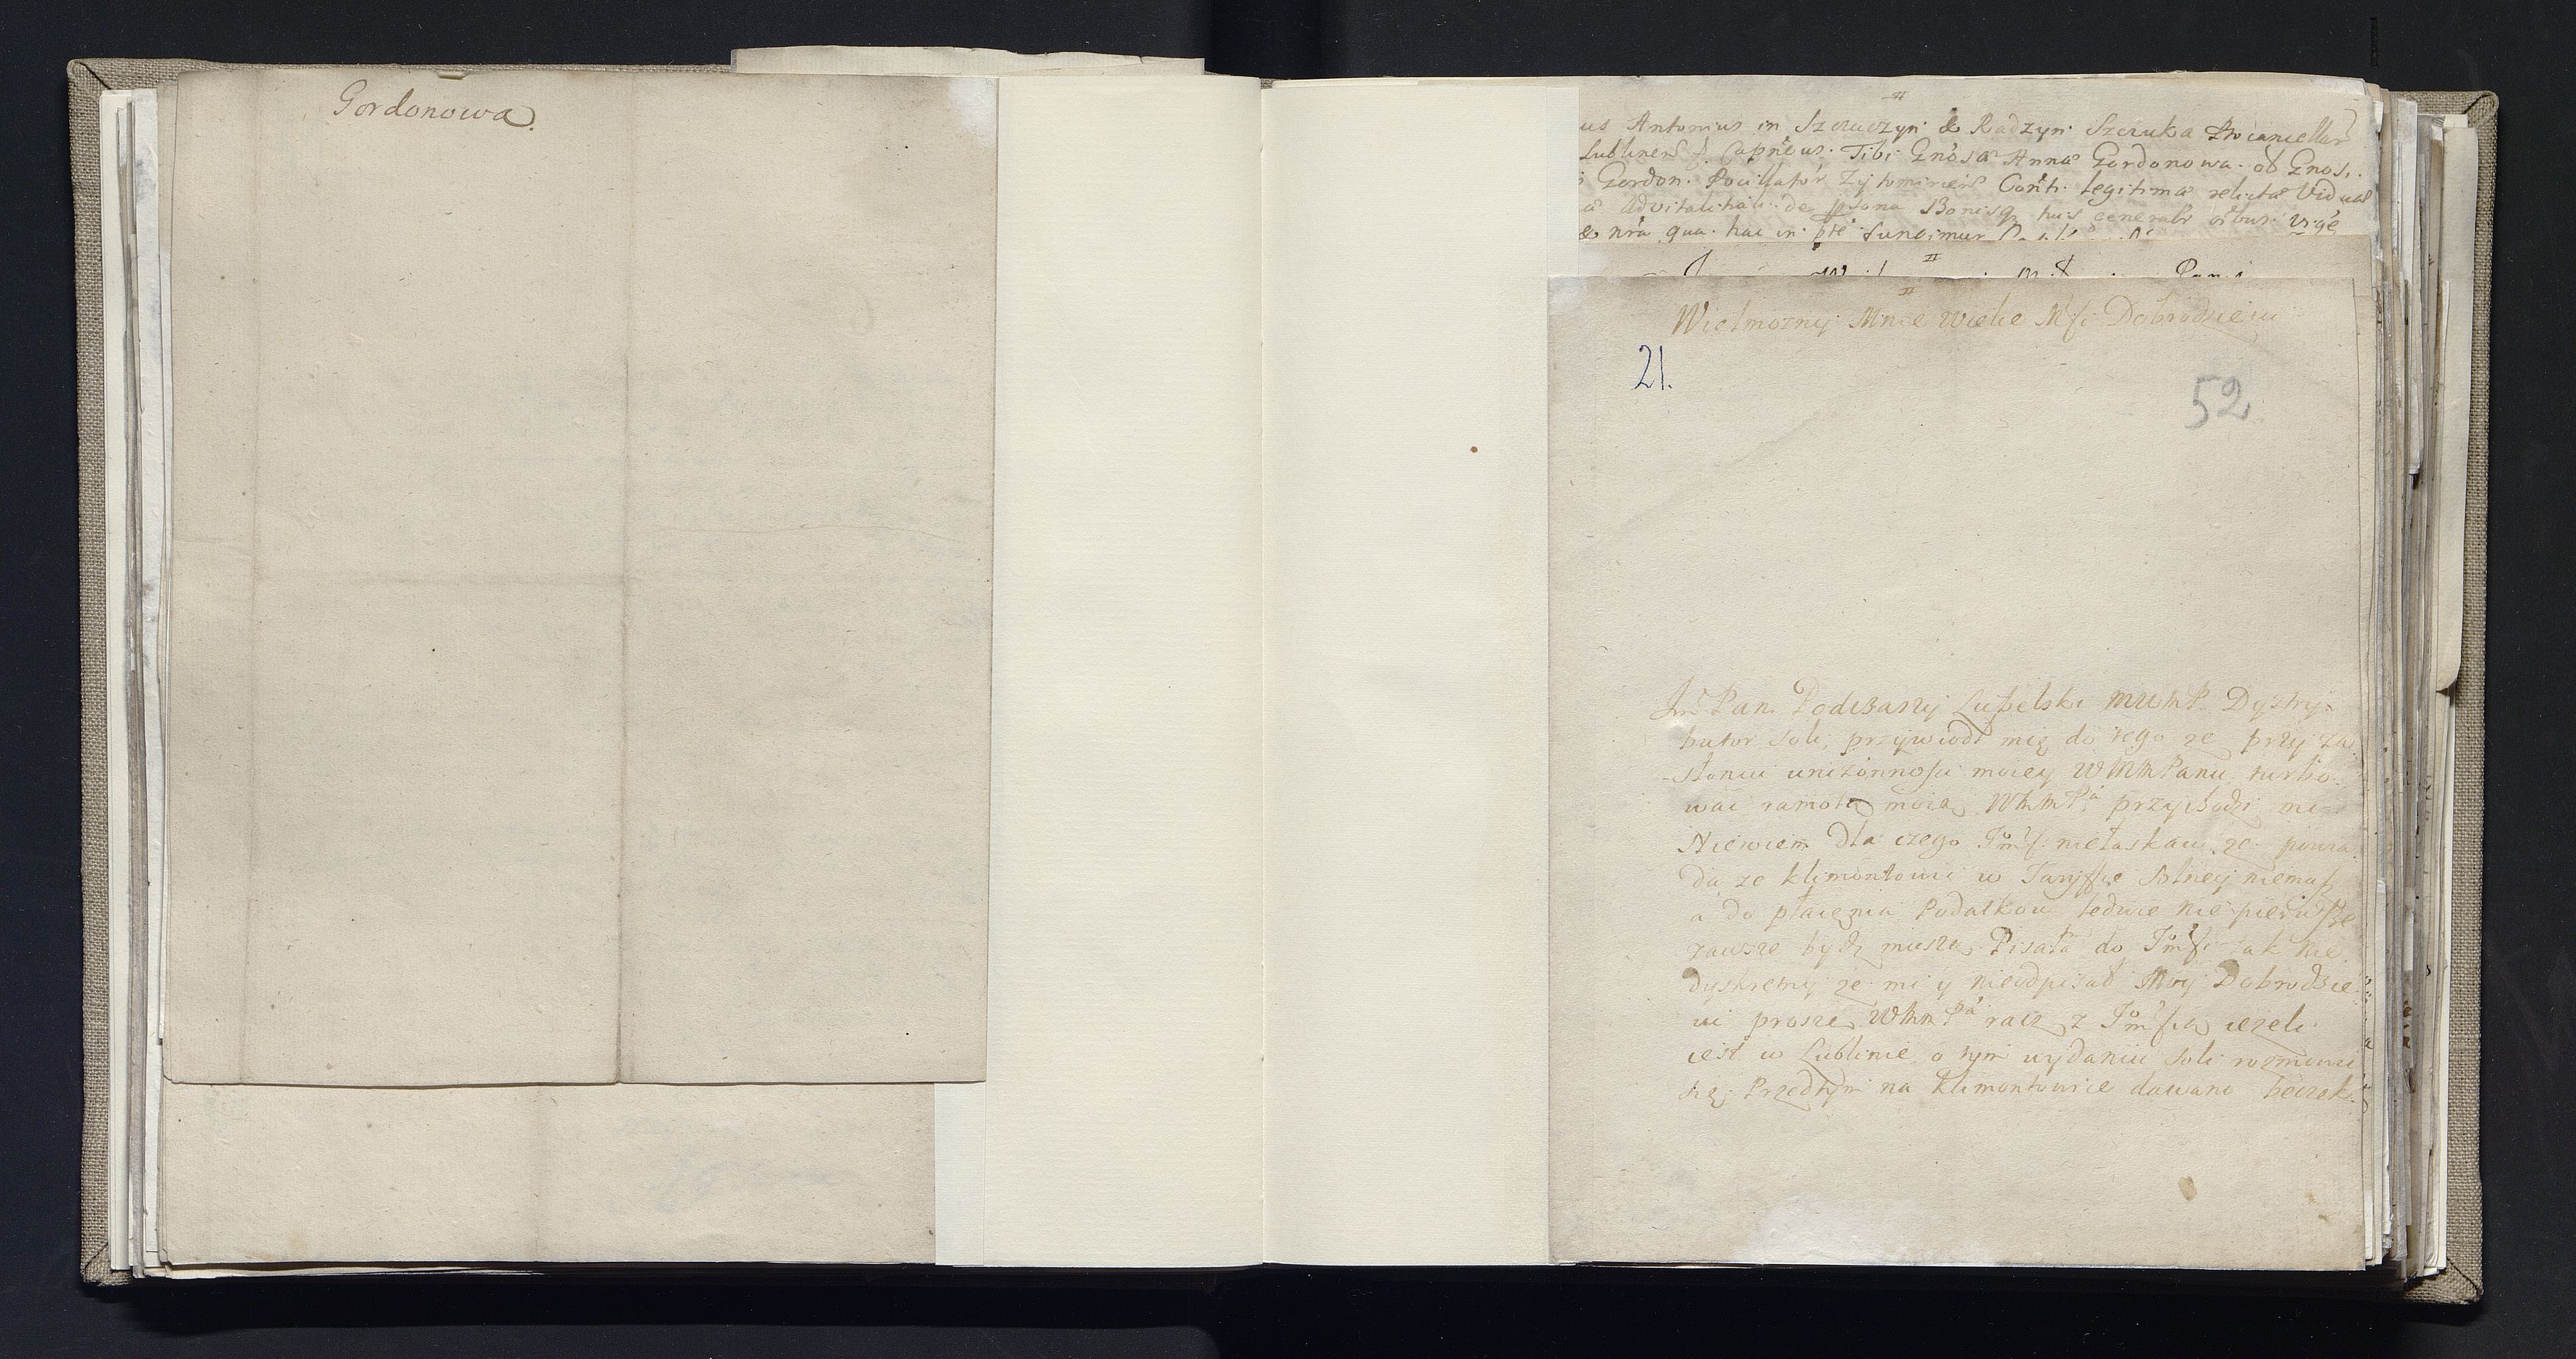 Gordonowa.
us Antonius in Szczuczyn & Radzyn Szczuka Procancellar
Lublinen Capneus. Tibi Gnosa Anna Gordonowa ab Gnosi.
Gordon. Pocillator Zytomirien Conth. legitima relicta Vidua
Advitalitati de psona Bonisq tuis generalr oibus
& nra qua hac in pte fungimur
Wielmozny Mnie Wielce Msci Dobrodzieiu
21.
52
Jm Pan Podczaszy Lubelski MWMP. Dystry-
butor soli, przywiodł mię do tego ze przy za
słaniu unizonnosci moiey WMMPanu turbo-
wac ramotą moią WMMPa przychodzi mi
Niewiem dla czego Jmsc niełaskaw ze powia
da ze klimontowi w Taryffie Solney niemasz
a do płacenia Podatkow ledwie nie pierwsze
zawsze bydz muszą. Pisała do Jmsci tak nie
dyskretny ze mi y nieodpisał Moy Dobrodzie
iu prosze WMMPa racz z Jmscią iezeli
iest w Lublinie o tym wydaniu soli rozmowi
się Przedtym na Klimontowice dawano beczek